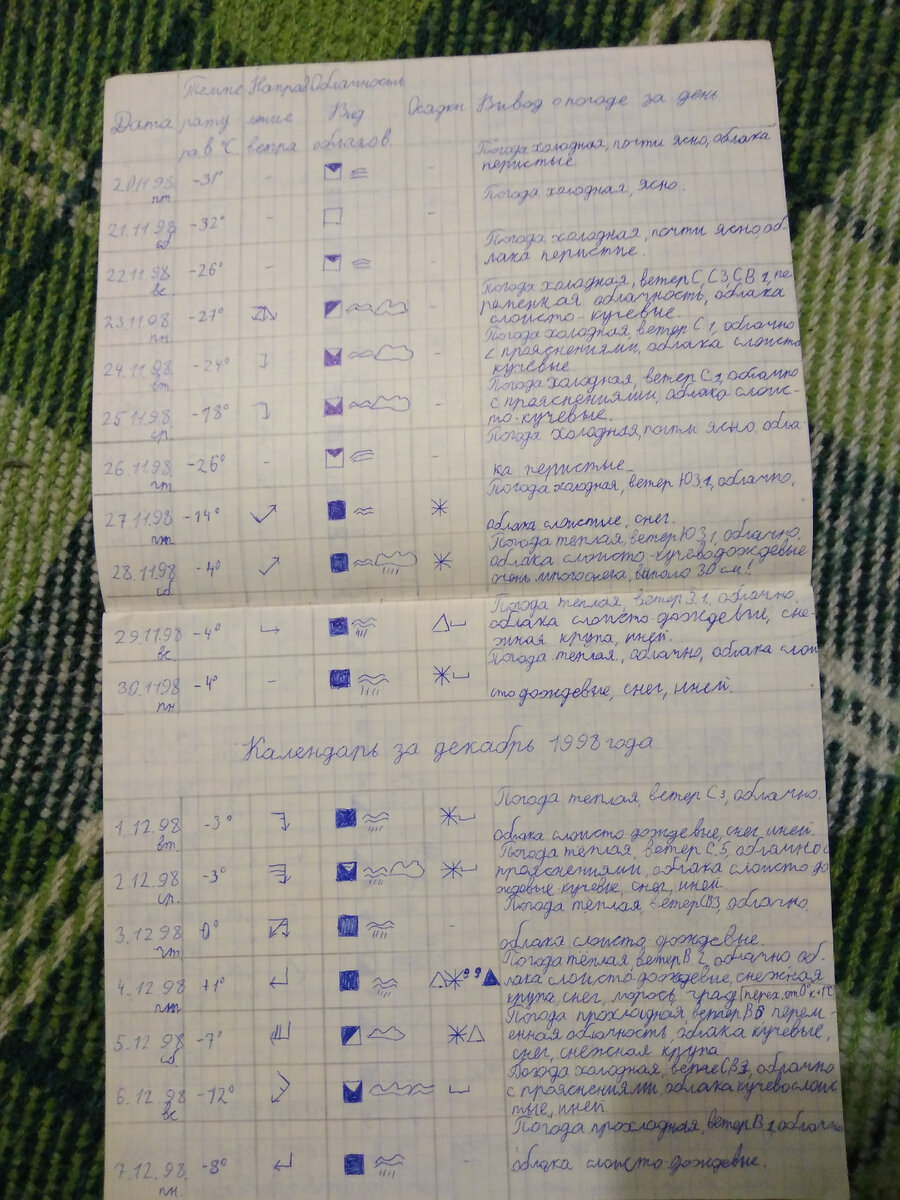 Темпе- Направ Облачность
Дата рату ление Вид Осадки Вывод о погоде за день
ра в °С. ветра облаков.
Погода холодная, почти ясно, облака
20.11.98 -31° - - перистые.
пт.
21.11.98 -32° - - Погода холодная, ясно.
сб.
Погода холодная, почти ясно, об-
22.11.98 -26° - - лака перистые.
вс.
Погода холодная, ветер С, СЗ, СВ 1, пе-
23.11.98 -27° - ременная облачность, облака
пн. слоисто-кучевые.
Погода холодная, ветер С 1, облачно
24.11.98 -24° - с прояснениями, облака слоисто
вт. кучевые.
Погода холодная, ветер С 1, облачно
25.11.98 -18° - с прояснениями, облака слоис-
ср. то-кучевые.
Погода холодная, почти ясно, обла
26.11.98 -26° - - ка перистые.
чт.
Погода холодная, ветер ЮЗ 1, облачно,
27.11.98 -14° облака слоистые, снег.
пт.
Погода теплая, ветер ЮЗ 1, облачно,
28.11.98 -4° облака слоисто-кучеводождевые
сб. очень много снега, выпало 30 см!
Погода теплая, ветер З 1, облачно,
29.11.98 -4° облака слоисто-дождевые, сне-
вс. жная крупа, иней.
Погода теплая, облачно, облака слои
30.11.98 -4° - сто дождевые, снег, иней.
пн.
Календарь за декабрь 1998 года.
Погода теплая, ветер С 3, облачно.
1.12.98 -3° облака слоисто дождевые, снег, иней.
вт.
Погода теплая, ветер С 5, облачно с
2.12.98 -3° прояснениями, облака слоисто до
ср. ждевые кучевые, снег, иней.
Погода теплая, ветер СВ3, облачно,
3.12.98 0° - облака слоисто дождевые.
чт.
Погода теплая ветер В 2, облачно об-
4.12.98 +1° лака слоисто дождевые, снежная
пт. крупа, снег, морось, град (перех. от 0° к +1°С
Погода прохладная, ветер В5 перем-
5.12.98 -7° енная облачность, облака кучевые,
сб. снег, снежная крупа
Погода холодная, ветер СВ3, облачно
6.12.98 -12° с прояснениями. облака кучевослоис
вс. тые, иней
Погода прохладная, ветер В 1, облачно
7.12.98 -8° - облака слоисто дождевые.
пн.